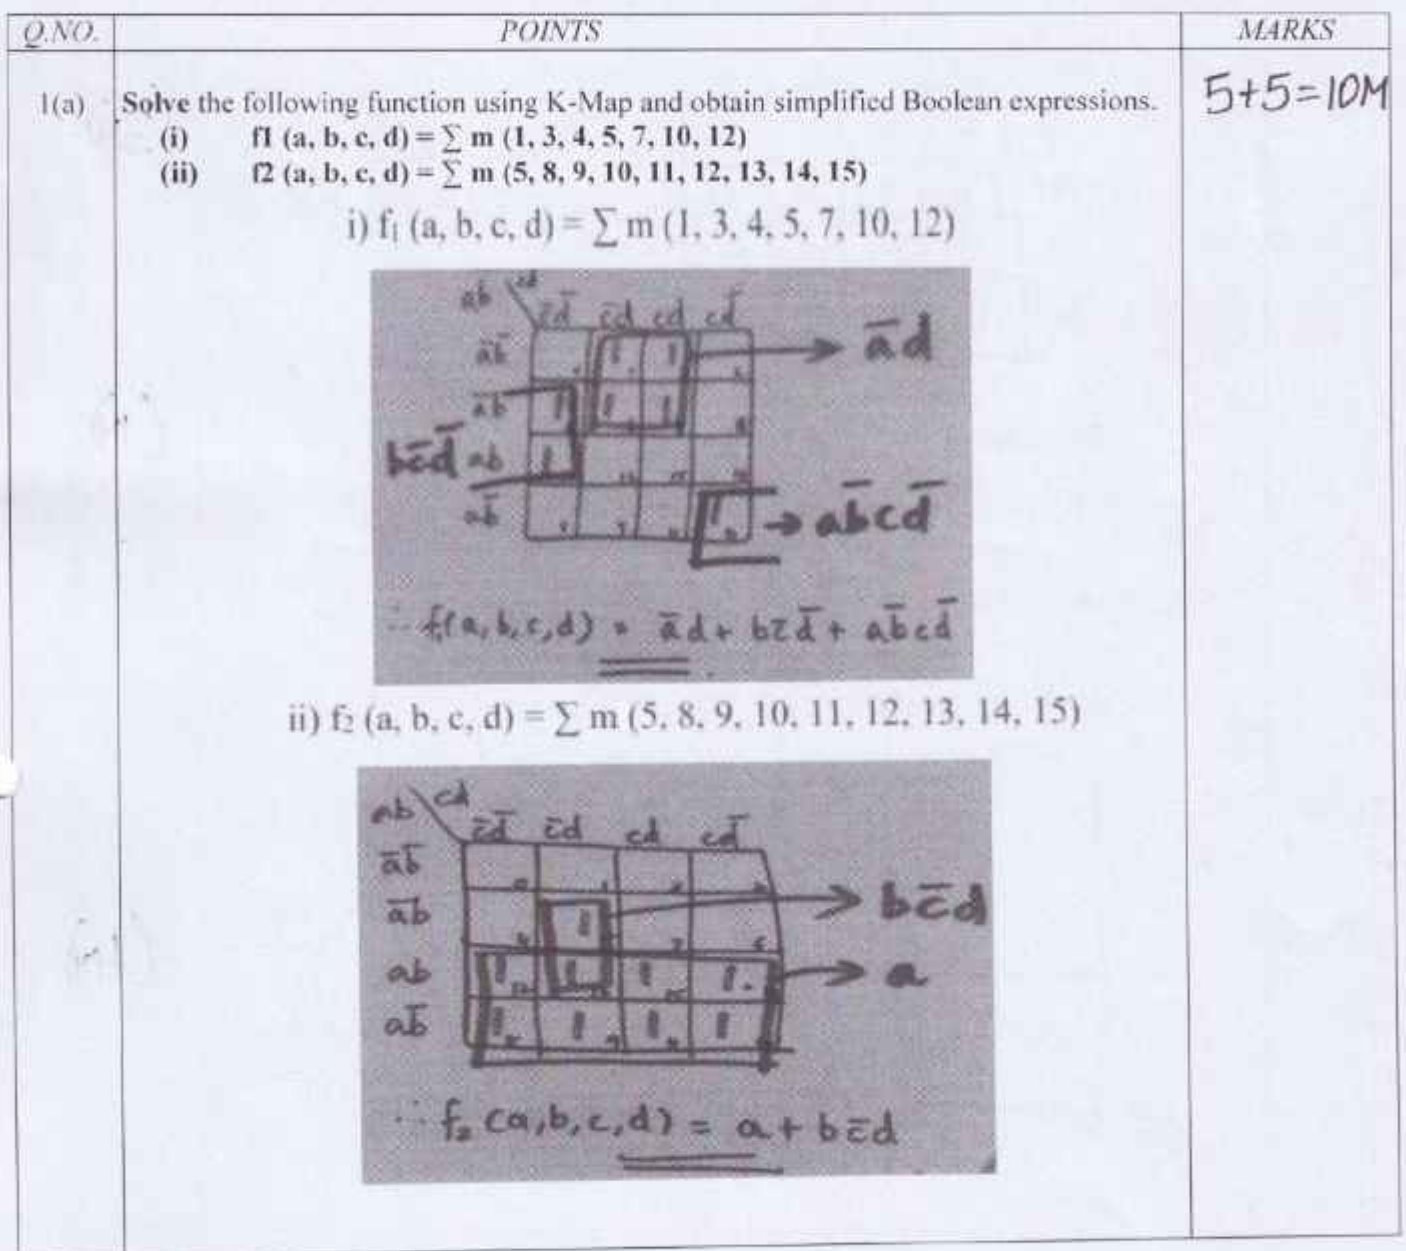 Q.NO. POINTS MARKS
1(a) Solve the following function using K-Map and obtain simplified Boolean expressions. 5+5=10M
(i) f1 (a, b, c, d) = ∑ m (1, 3, 4, 5, 7, 10, 12)
(ii) f2 (a, b, c, d) = ∑ m (5, 8, 9, 10, 11, 12, 13, 14, 15)
i) f₁ (a, b, c, d) = ∑ m (1, 3, 4, 5, 7, 10, 12)
ab cd
c̅d̅ c̅d cd cd̅
a̅b̅ 1 1 → a̅d
a̅b 1 1 1
bc̅d̅ ab 1
ab̅ 1 → ab̅cd̅
∴ f₁(a,b,c,d) = a̅d + bc̅d̅ + ab̅cd̅
ii) f₂ (a, b, c, d) = ∑ m (5, 8, 9, 10, 11, 12, 13, 14, 15)
ab cd
c̅d̅ c̅d cd cd̅
a̅b̅
a̅b 1 → bc̅d
ab 1 1 1 1 → a
ab̅ 1 1 1 1
∴ f₂ (a,b,c,d) = a + bc̅d